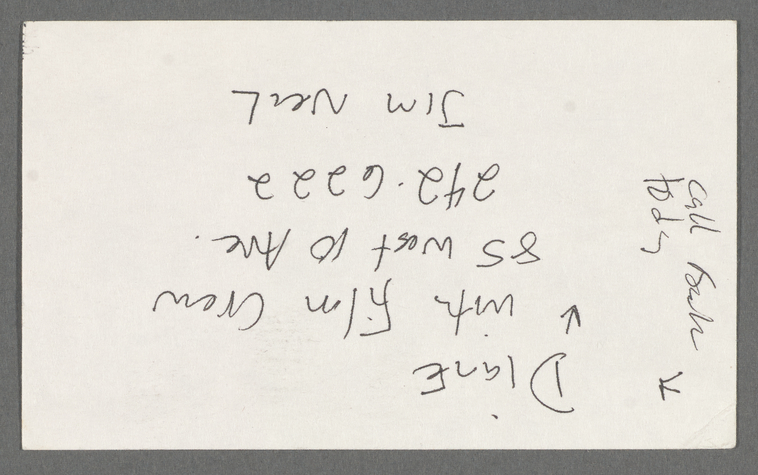 Diane
with Film Crew
85 West 10 Ave.
242.6222
Jim Neal
Call Back
today